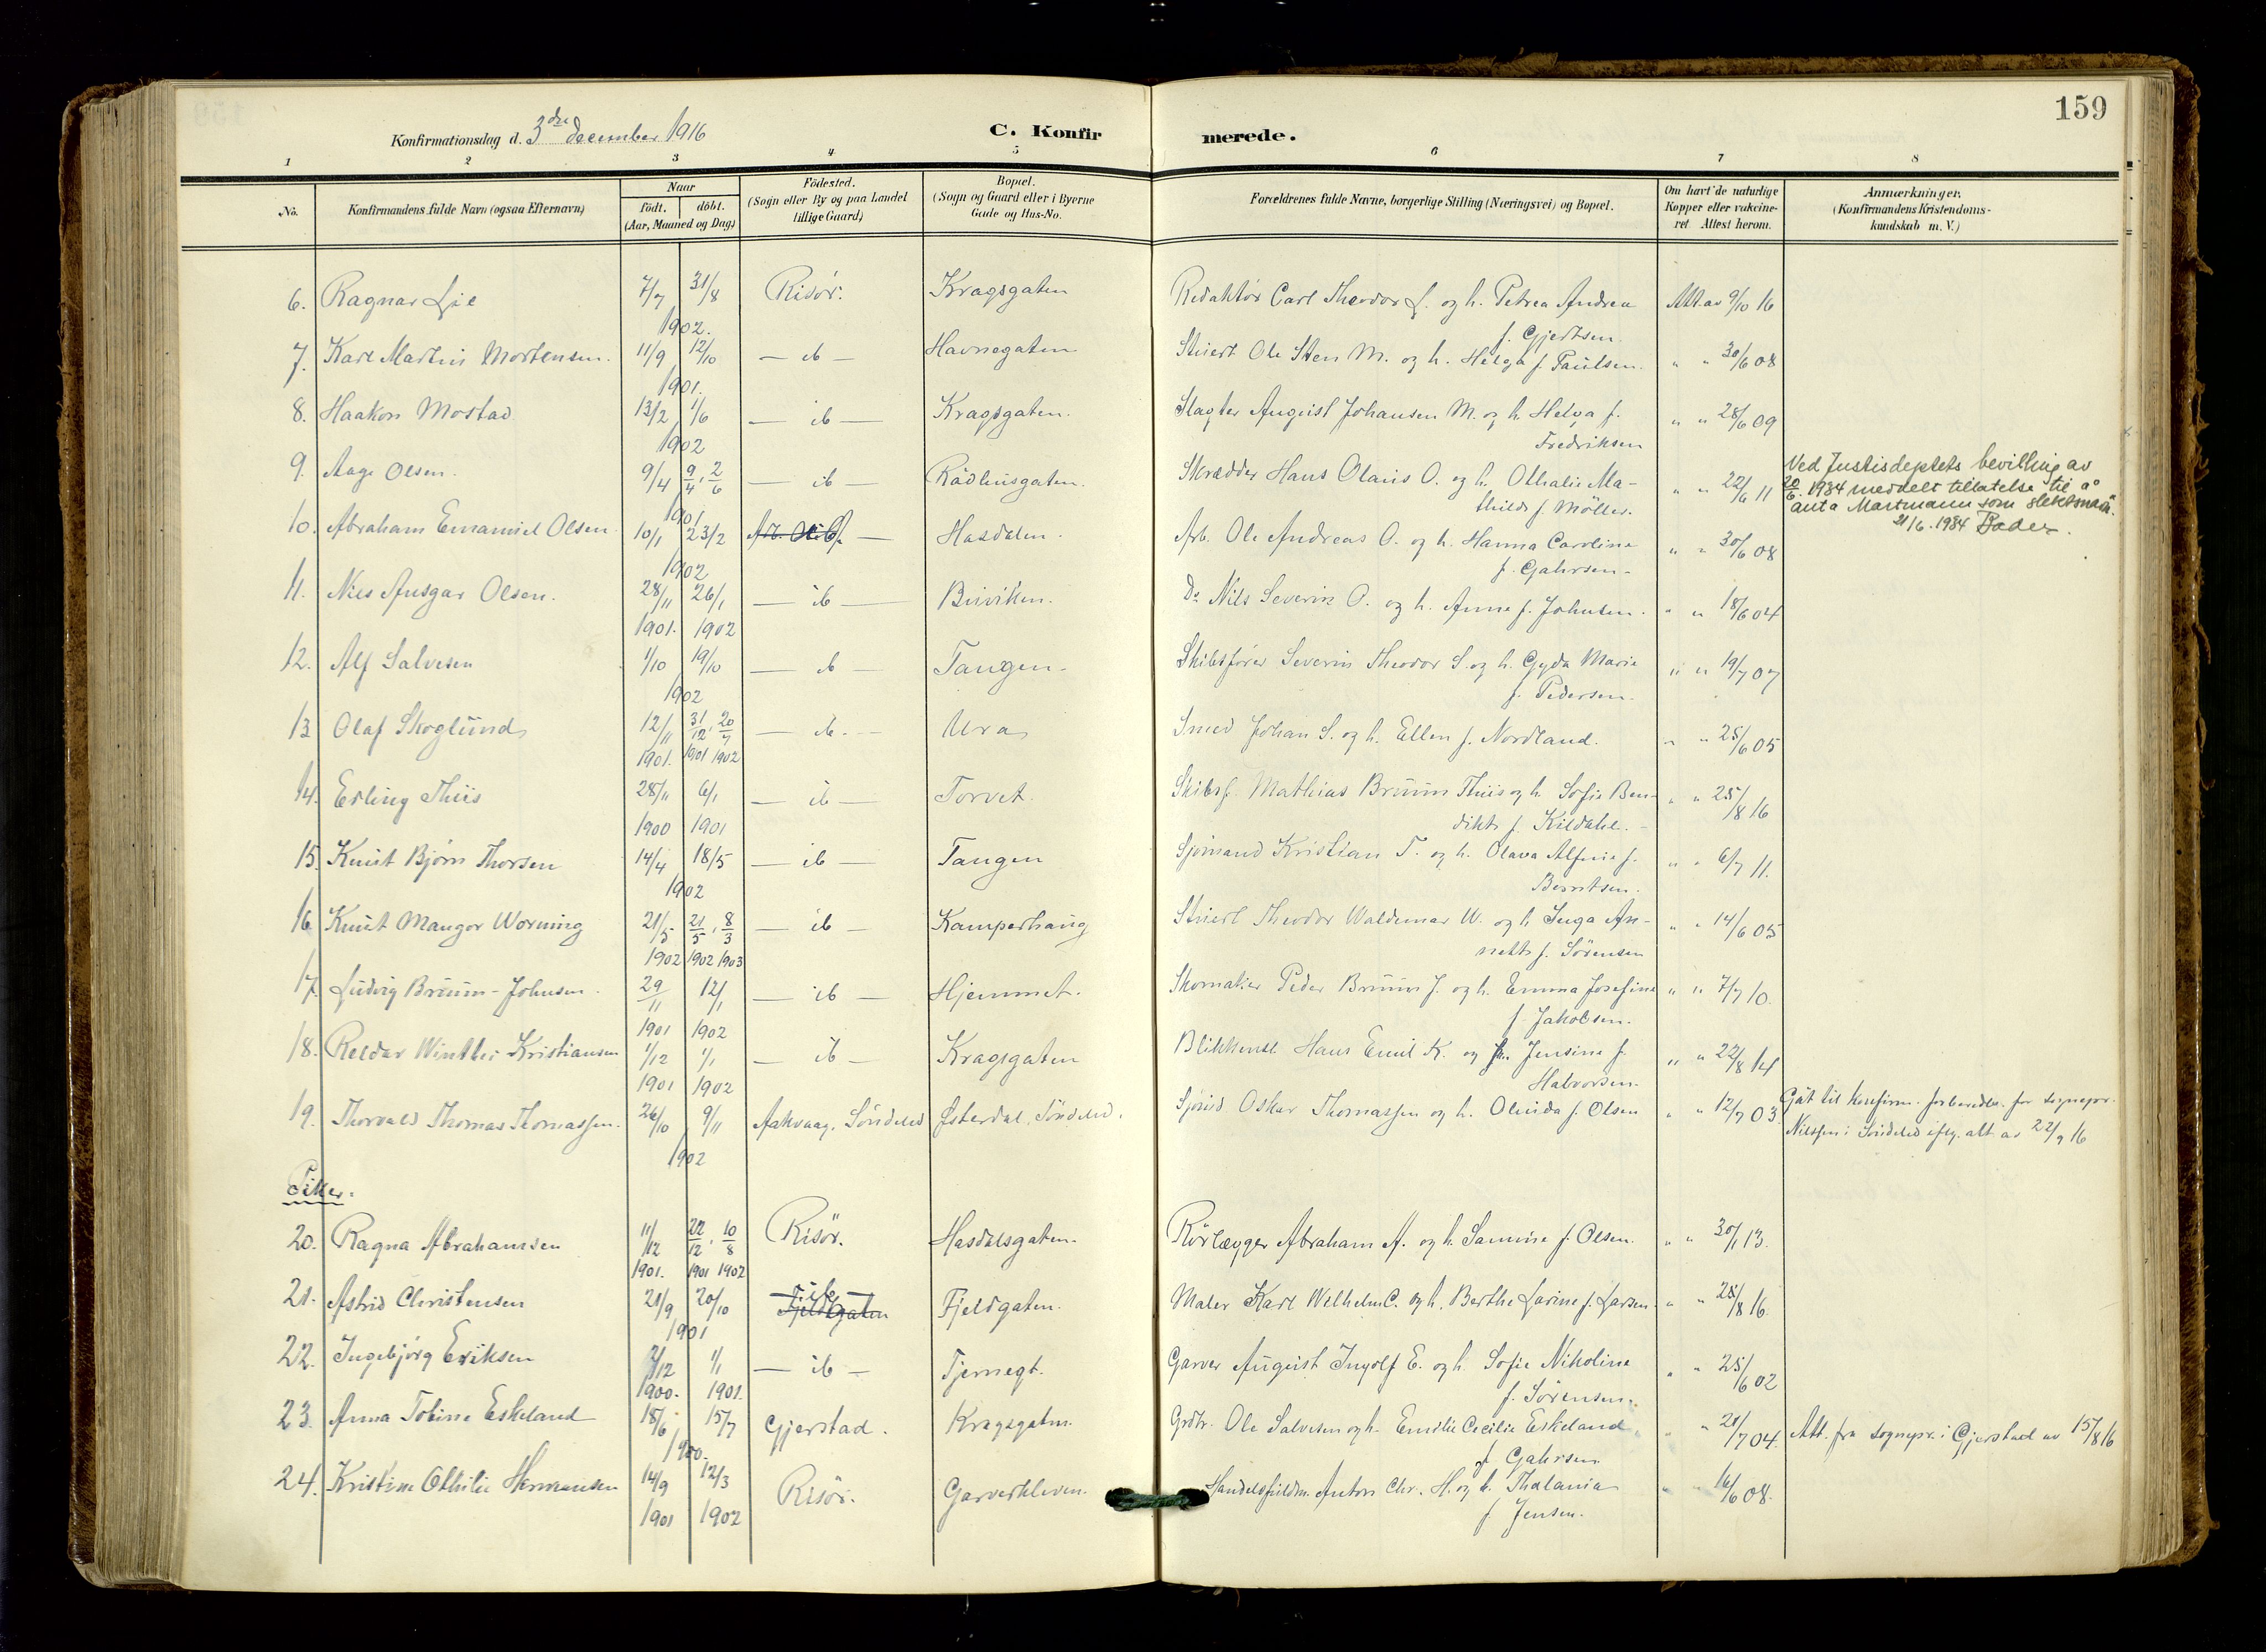 159
Konfirmationsdag d. 3dre december 1916
C. Konfirmerede.
1 2 3 4 5 6 7 8
No. Konfirmandens fulde Navn (ogsaa Efternavn) Naar født. døbt. (Aar, Maaned og Dag) Födested. (Sogn eller By og paa Landet tillige Gaard) Bopæl. (Sogn og Gaard eller i Byerne Gade og Hus-No. Forældrenes fulde Navne, borgerlige Stilling (Næringsvei) og Bopæl. Om havt de naturlige Kopper eller vakcineret Attest herom. Anmærkninger. (Konfirmandens Kristendomskundskab m. V.)
6. Ragnar Lie 7/7 31/8 Risör. Kragsgaten Redaktör Carl Theodor L. og h. Petrea Andrea Att av 9/10 16
1902. f. Gjertsen.
7. Karl Martin Mortensen. 11/9 12/10 — ib — Havnegaten Stuert Ole Sten M. og h. Helga f. Paulsen. " " 30/6 08
1901.
8. Haakon Mostad 13/2 1/6 — ib — Kragsgaten. Slagter August Johansen M. og h. Helga f. " " 28/6 09
1902 Fredriksen
9. Aage Olsen. 9/4 9/4, 2/6 — ib — Rådhusgaten. Skrædder Hans Olaus O. og h. Othalie Ma- " " 22/6 11 Ved Justisdeptets bevilling av
1901 thilde f. Möller. 20/6. 1934 meddelt tillatelse til å
anta Martmann som slektsnavn.
21/6. 1934
10. Abraham Emanuel Olsen 10/1 23/2 — Hasdalen. Arb. Ole Andreas O. og h. Hanna Caroline " " 30/6 08
1902 f. Gahrsen-
11. Nils Ansgar Olsen. 28/11 26/1 — ib — Buviken. Do Nils Severin O. og h. Anne f. Johnsen. " " 18/6 04
1901. 1902
12. Alf Salvesen 1/10 19/10 — ib — Tangen- Skibsfører Severin Theodor S. og h. Gyda Marie " " 19/7 07
1902 f. Pedersen.
13 Olaf Skoglund 12/11 31/12, 20/7 — ib. — Ura Smed Johan S. og h. Ellen f. Nordland. " " 25/6 05
1901. 1901 1902
14. Erling Thiis 28/11 6/1 — ib — Torvet. Skibsf. Mathias Bruun Thiis og h. Sofie Ben- " " 25/8 16
1900 1901 dikte f. Kildahl.
15. Knut Bjørn Thorsen 14/4 18/5 — ib — Tangen Sjömand Kristian T. og h. Olava Alfine f. " " 6/7 11.
1902 Berntsen.
16. Knut Mangor Worning 21/5 21/5, 8/3 — ib — Kamperhaug Stuert Theodor Waldemar W. og h. Inga An- " " 14/6 05
1902 1902 1903 nette f. Sörensen
17. Ludvig Bruun-Johnsen. 29/11 12/1 — ib — Hjemmet. Skomaker Peder Bruun J. og h. Emma Josefine " " 7/7 10.
1901 1902 f. Jakobsen.
18. Reidar Winther Kristiansen 1/12 1/1 — ib — Kragsgaten Blikkensl. Hans Emil K. og h. Jensine f. " " 22/8 14
1901 1902 Halvorsen.
19. Thorvald Thomas Thomassen. 26/10 9/11 Aakvaag, Söndeled Østerdal, Söndeled. Sjömd. Oskar Thomassen og h. Olinda f. Olsen " " 12/7 03. Gåt til konfirm. forberedle. for sognepr.
1902 Nilssen i Söndeled iflg. att. av 22/9 16
Piker.
20. Ragna Abrahamsen 11/12 22/12, 10/8 Risör. Hasdalsgaten. Rörlægger Abraham A. og h. Samine f. Olsen. " " 30/1 13.
1901. 1901 1902
21. Astrid Christensen 21/9 20/10 — ib — Fjeldgaten Fjeldgaten. Maler Karl Wilhelm C. og h. Berthe Larine f. Larsen. " " 25/8 16.
1901
22. Ingebjørg Eriksen 2/12 1/1 — ib — Tjernegt. Garver August Ingolf E. og h. Sofie Nikoline " " 25/6 02
1900. 1901. f. Sörensen.
23. Anna Tobine Eskeland 18/6 15/7 Gjerstad. Kragsgaten. Grdbr. Ole Salvesen og h. Emilie Cecilie Eskeland " " 21/7 04. Att. fra sognepr. i Gjerstad av 15/8 16
1900. f. Gahrsen
24. Kristine Othilie Hermansen 14/9 12/3 Risör. Garverkleven. Handelsfuldm. Anton Chr. H. og h. Thalania " " 16/6 08.
1901 1902 f. Jensen.